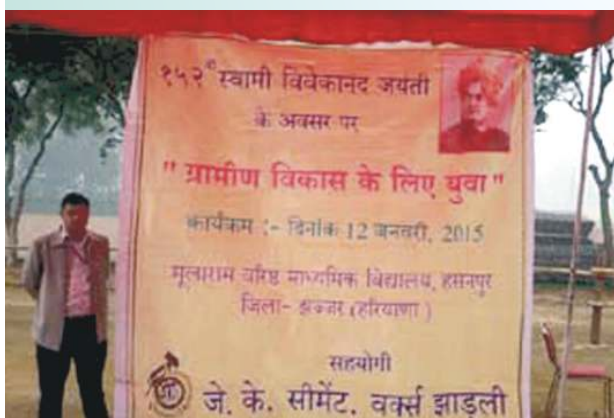 १५२ वी स्वामी विवेकानंद जयंती
के अवसर पर
" ग्रामीण विकास के लिए युवा "
कार्यक्रम :- दिनांक 12 जनवरी, 2015
मूलाराम वरिष्ठ माध्यमिक विद्यालय, हसनपुर
जिला- झज्जर (हरियाणा)
सहयोगी
जे. के. सीमेंट, वर्क्स झाड़ली